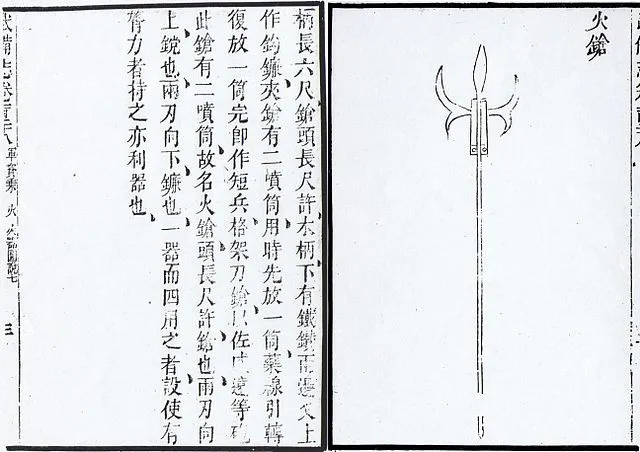 火鎗
柄長六尺鎗頭長尺許木柄下有鐵鐏兩邊叉上
作鈎鐮夾鎗有二噴筒用時先放一筒藥線引轉
復放一筒完即作短兵格架刀鎗以佐威遠等砲
此鎗有二噴筒故名火鎗頭長尺許鎗也兩刃向
上鎲也兩刃向下鐮也一器而四用之者設使有
膂力者持之亦利器也
武備志卷 軍資乘 火 火器圖說七 三